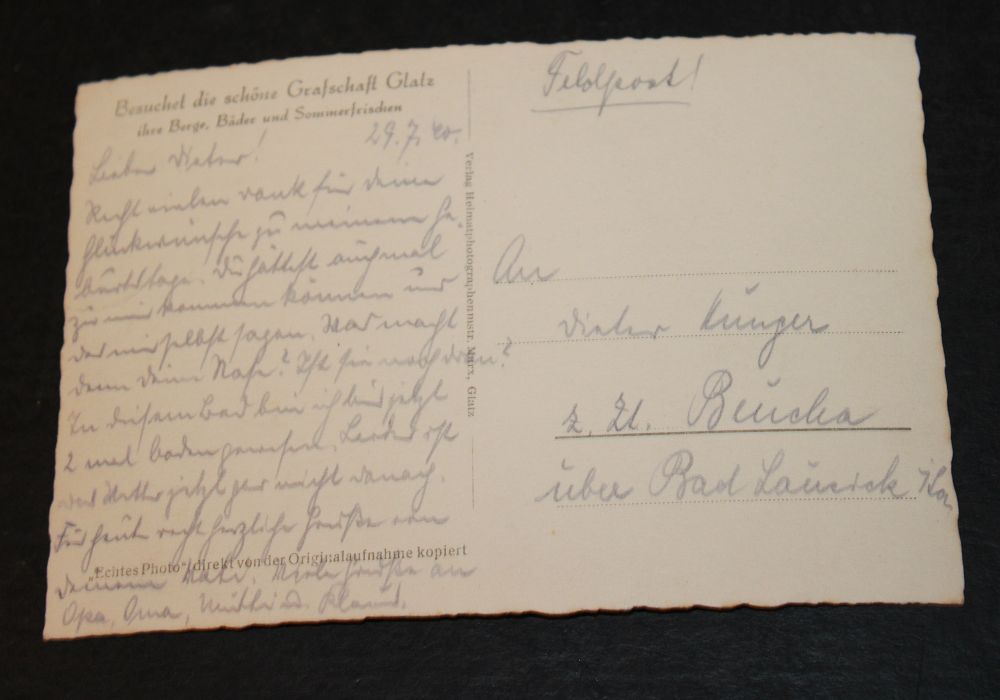 Besuchet die schöne Grafschaft Glatz
ihre Berge, Bäder und Sommerfrischen
29.7.40.
Lieber Dieter!
Recht vielen Dank für deine
Glückwünsche zu meinem Ge-
burtstage. Du hättest auch mal
zu mir kommen können und
das mir selbst sagen. Was macht
denn deine Nase? Ist sie noch dran?
In diesem Bad bin ich bis jetzt
2 mal baden gewesen. Leider ist
das Wetter jetzt gar nicht danach.
Für heute recht herzliche Grüße von
„Echtes Photo“ direkt von der Originalaufnahme kopiert
deinem Viele Grüße an
Opa, Oma, Mutti u. Klaus.
Verlag Heimatphotographenmstr. Marx, Glatz
Feldpost!
An
Dieter Kunger
z. Zt. Beucha
über Bad Lausick